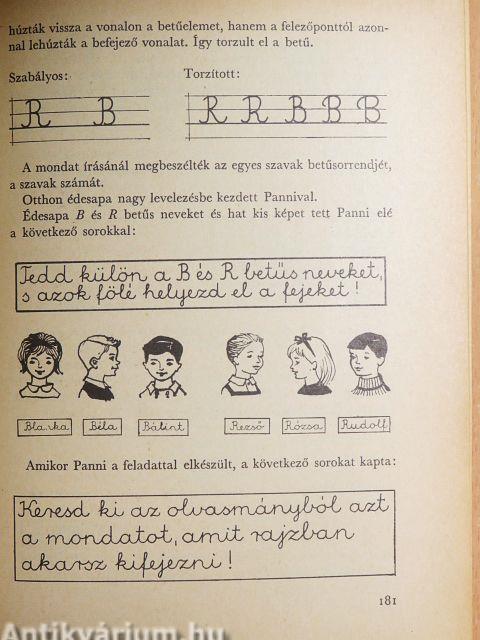 húzták vissza a vonalon a betűelemet, hanem a felezőponttól azon-
nal lehúzták a befejező vonalat. Így torzult el a betű.
Szabályos: Torzított:
R B R R B B B
A mondat írásánál megbeszélték az egyes szavak betűsorrendjét,
a szavak számát.
Otthon édesapa nagy levelezésbe kezdett Pannival.
Édesapa B és R betűs neveket és hat kis képet tett Panni elé
a következő sorokkal:
Tedd külön a B és R betűs neveket,
s azok fölé helyezd el a fejeket!
Blanka Béla Bálint Rezső Rózsa Rudolf
Amikor Panni a feladattal elkészült, a következő sorokat kapta:
Keresd ki az olvasmányból azt
a mondatot, amit rajzban
akarsz kifejezni!
181
Antikvárium.hu